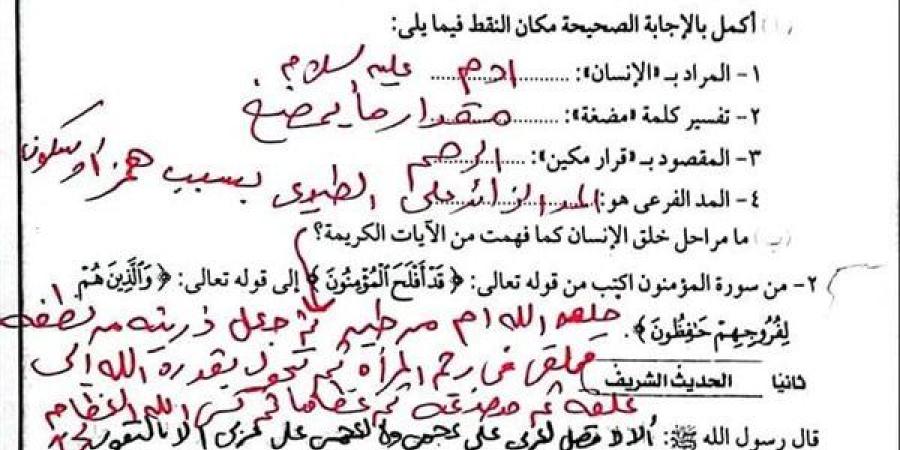 (أ) أكمل بالإجابة الصحيحة مكان النقط فيما يلى:
١- المراد بـ «الإنسان»: ادم عليه سلام
٢- تفسير كلمة «مضغة»: مقدار ما يمضغ
٣- المقصود بـ «قرار مكين»: الرحم
٤- المد الفرعى هو: المد الزائد على الطبيعى بسبب همز او سكون
(ب) ما مراحل خلق الإنسان كما فهمت من الآيات الكريمة؟
٢- من سورة المؤمنون اكتب من قوله تعالى: ﴿ قَدْ أَفْلَحَ الْمُؤْمِنُونَ ﴾ إلى قوله تعالى: ﴿ وَالَّذِينَ هُمْ
لِفُرُوجِهِمْ حَافِظُونَ ﴾.
الله من طين ثم جعل ذريته من نطفه
فى رحم المرأه ثم تحول بقدرة الله الى
ثانيا الحديث الشريف
علقه ثم مضغه ثم عظاما ثم كسى الله العظام
قال رسول الله ﷺ: ألا لا فضل لعربى على عجمى ولا لعجمى على عربى الا بالتقوى